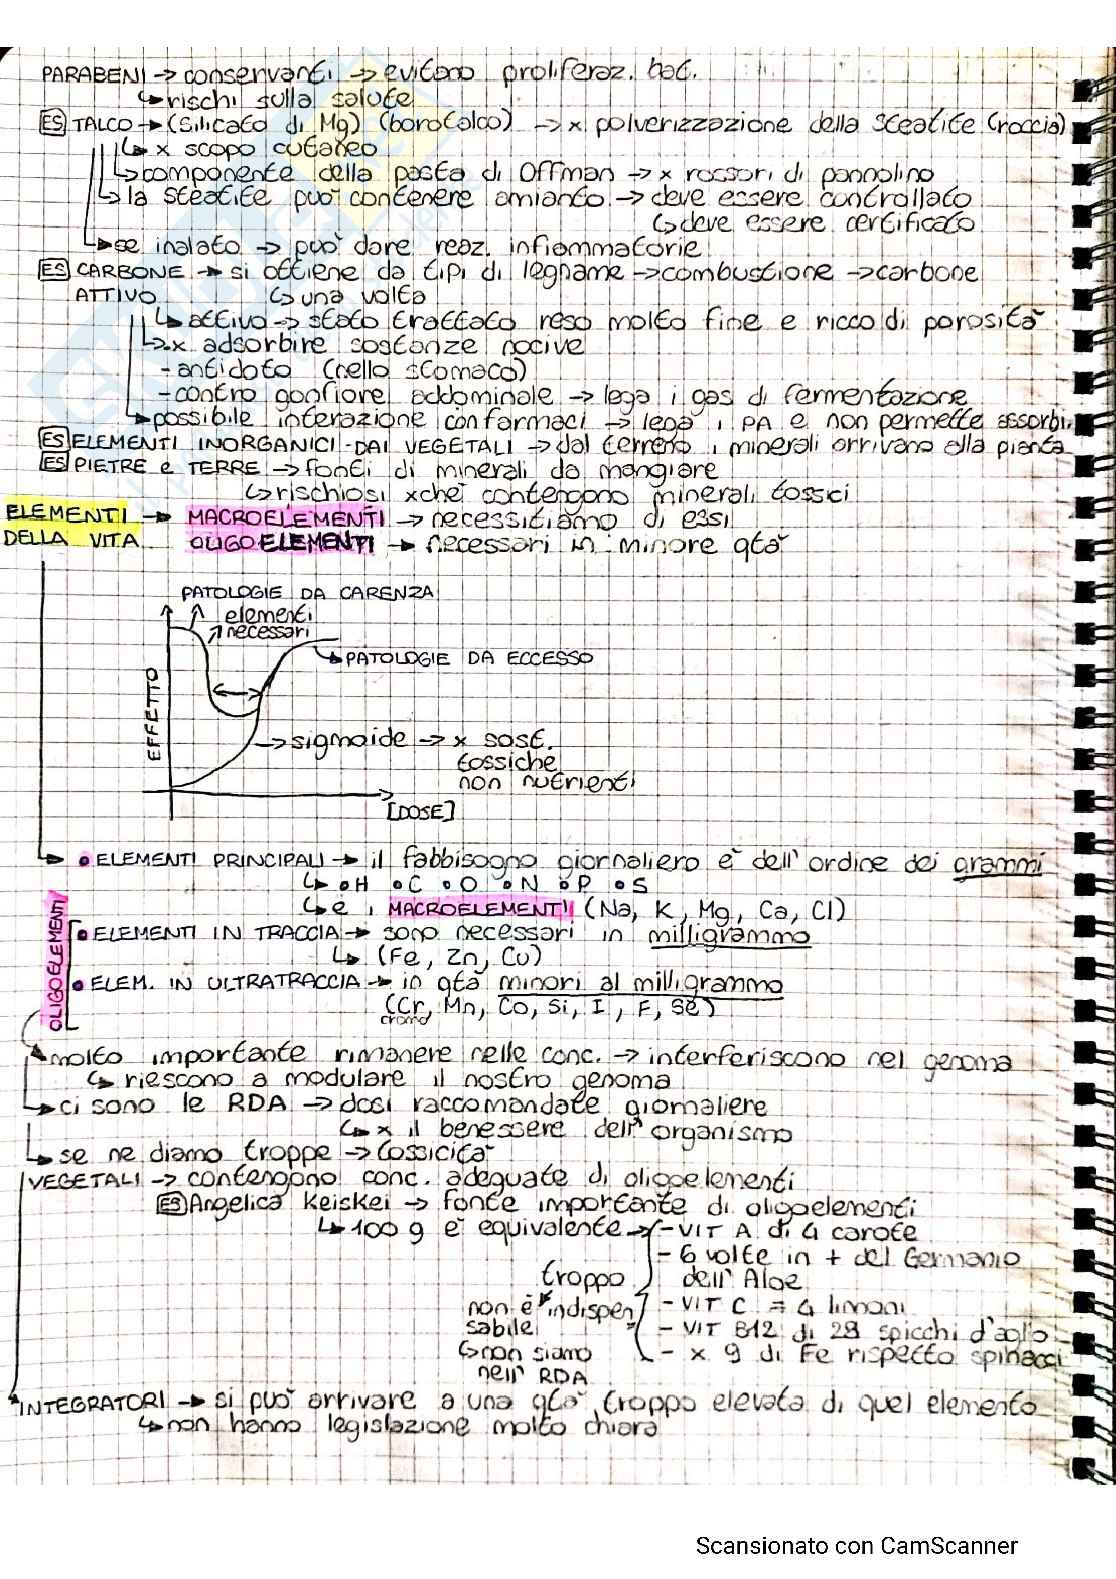 PARABENI → conservanti → evitano proliferaz. bat.
↳ rischi sulla salute
ES TALCO → (Silicato di Mg) (borotalco) → x polverizzazione della steatite (roccia)
↳ x scopo cutaneo
↳ componente della pasta di Offman → x rossori di pannolino
↳ la steatite può contenere amianto → deve essere controllato
↳ deve essere certificato
↳ se inalato → può dare reaz. infiammatorie
ES CARBONE → si ottiene da tipi di legname → combustione → carbone
ATTIVO ↳ una volta
↳ attivo → stato trattato reso molto fine e ricco di porosità
↳ x adsorbire sostanze nocive
- antidoto (nello stomaco)
- contro gonfiore addominale → lega i gas di fermentazione
↳ possibile interazione con farmaci → lega i PA e non permette assorbi.
ES ELEMENTI INORGANICI DAI VEGETALI → dal terreno i minerali arrivano alla pianta
ES PIETRE e TERRE → fonti di minerali da mangiare
↳ rischiosi xchè contengono minerali tossici
ELEMENTI → MACROELEMENTI → necessitiamo di essi
DELLA VITA OLIGOELEMENTI → necessari in minore qtà
PATOLOGIE DA CARENZA
elementi
necessari
↳ PATOLOGIE DA ECCESSO
EFFETTO
→ sigmoide → x sost.
tossiche
non nutrienti
[DOSE]
• ELEMENTI PRINCIPALI → il fabbisogno giornaliero è dell'ordine dei grammi
↳ • H • C • O • N • P • S
↳ e i MACROELEMENTI (Na, K, Mg, Ca, Cl)
OLIGOELEMENTI
• ELEMENTI IN TRACCIA → sono necessari in milligrammo
↳ (Fe, Zn, Cu)
• ELEM. IN ULTRATRACCIA → in qtà minori al milligrammo
(Cr, Mn, Co, Si, I, F, Se)
cromo
molto importante rimanere nelle conc. → interferiscono nel genoma
↳ riescono a modulare il nostro genoma
↳ ci sono le RDA → dosi raccomandate giornaliere
↳ x il benessere dell'organismo
↳ se ne diamo troppe → tossicità
VEGETALI → contengono conc. adeguate di oligoelementi
ES Angelica Keiskei → fonte importante di oligoelementi
↳ 100 g è equivalente → - VIT A di 4 carote
- 6 volte in + del Germanio
troppo dell' Aloe
non è indispen - VIT C = 4 limoni
sabile - VIT B12 di 28 spicchi d'aglio
↳ non siamo - x 9 di Fe rispetto spinacci
nell' RDA
INTEGRATORI → si può arrivare a una qtà troppo elevata di quel elemento
↳ non hanno legislazione molto chiara
Scansionato con CamScanner